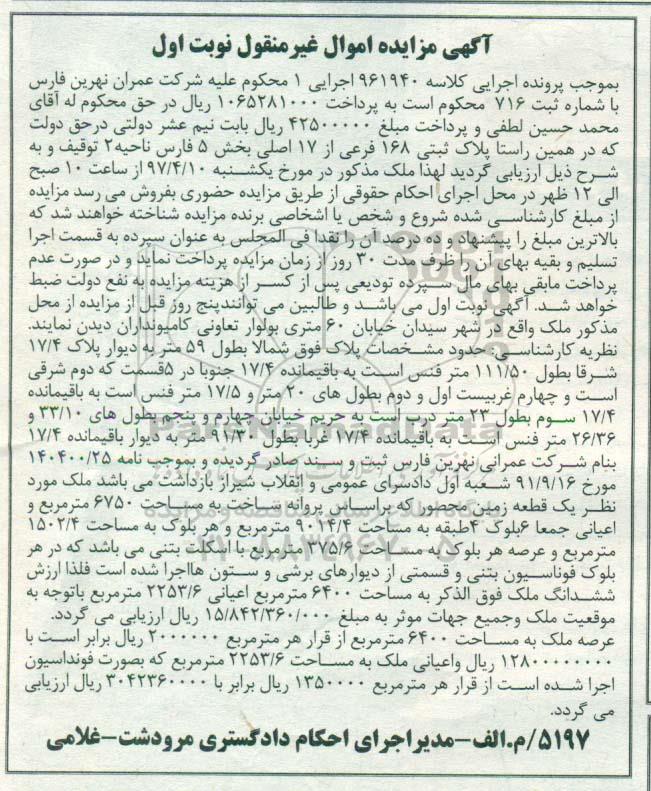 آگهی مزایده اموال غیرمنقول نوبت اول
بموجب پرونده اجرایی کلاسه ۹۶۱۹۴۰ اجرایی ۱ محکوم علیه شرکت عمران نهرین فارس
با شماره ثبت ۷۱۶ محکوم است به پرداخت ۱۰۶۵۲۸۱۰۰۰ ریال در حق محکوم له آقای
محمد حسین لطفی و پرداخت مبلغ ۴۲۵۰۰۰۰۰ ریال بابت نیم عشر دولتی درحق دولت
که در همین راستا پلاک ثبتی ۱۶۸ فرعی از ۱۷ اصلی بخش ۵ فارس ناحیه۲ توقیف و به
شرح ذیل ارزیابی گردید لهذا ملک مذکور در مورخ یکشنبه ۹۷/۴/۱۰ از ساعت ۱۰ صبح
الی ۱۲ ظهر در محل اجرای احکام حقوقی از طریق مزایده حضوری بفروش می رسد مزایده
از مبلغ کارشناسی شده شروع و شخص یا اشخاصی برنده مزایده شناخته خواهند شد که
بالاترین مبلغ را پیشنهاد و ده درصد آن را نقدا فی المجلس به عنوان سپرده به قسمت اجرا
تسلیم و بقیه بهای آن را ظرف مدت ۳۰ روز از زمان مزایده پرداخت نماید و در صورت عدم
پرداخت مابقی بهای مال سپرده تودیعی پس از کسر از هزینه مزایده به نفع دولت ضبط
خواهد شد. آگهی نوبت اول می باشد و طالبین می توانندپنج روز قبل از مزایده از محل
مذکور ملک واقع در شهر سیدان خیابان ۶۰ متری بولوار تعاونی کامیونداران دیدن نمایند.
نظریه کارشناسی:حدود مشخصات پلاک فوق شمالا بطول ۵۹ متر به دیوار پلاک ۱۷/۴
شرقا بطول ۱۱۱/۵۰ متر فنس است به باقیمانده ۱۷/۴ جنوبا در ۵قسمت که دوم شرقی
است و چهارم غربیست اول و دوم بطول های ۲۰ متر و ۱۷/۵ متر فنس است به باقیمانده
۱۷/۴ سوم بطول ۲۳ متر درب است به حریم خیابان چهارم و پنجم بطول های ۳۳/۱۰ و
۲۶/۳۶ متر فنس است به باقیمانده ۱۷/۴ غربا بطول ۹۱/۳۰ متر به دیوار باقیمانده ۱۷/۴
بنام شرکت عمرانی نهرین فارس ثبت و سند صادر گردیده و بموجب نامه ۱۴۰۴۰۰/۲۵
مورخ ۹۱/۹/۱۶ شعبه اول دادسرای عمومی و انقلاب شیراز بازداشت می باشد ملک مورد
نظر یک قطعه زمین محصور که براساس پروانه ساخت به مساحت ۶۷۵۰ مترمربع و
اعیانی جمعا ۶بلوک ۴طبقه به مساحت ۹۰۱۴/۴ مترمربع و هر بلوک به مساحت ۱۵۰۲/۴
مترمربع و عرصه هر بلوک به مساحت ۳۷۵/۶ مترمربع با اسکلت بتنی می باشد که در هر
بلوک فوناسیون بتنی و قسمتی از دیوارهای برشی و ستون هااجرا شده است فلذا ارزش
ششدانگ ملک فوق الذکر به مساحت ۶۴۰۰ مترمربع اعیانی ۲۲۵۳/۶ مترمربع باتوجه به
موقعیت ملک وجمیع جهات موثر به مبلغ ۱۵/۸۴۲/۳۶۰/۰۰۰ ریال ارزیابی می گردد.
عرصه ملک به مساحت ۶۴۰۰ مترمربع از قرار هر مترمربع ۲۰۰۰۰۰۰ ریال برابر است با
۱۲۸۰۰۰۰۰۰۰۰ ریال واعیانی ملک به مساحت ۲۲۵۳/۶ مترمربع که بصورت فونداسیون
اجرا شده است از قرار هر مترمربع ۱۳۵۰۰۰۰ ریال برابر با ۳۰۴۲۳۶۰۰۰۰ ریال ارزیابی
می گردد.
۵۱۹۷/م.الف-مدیراجرای احکام دادگستری مرودشت-غلامی